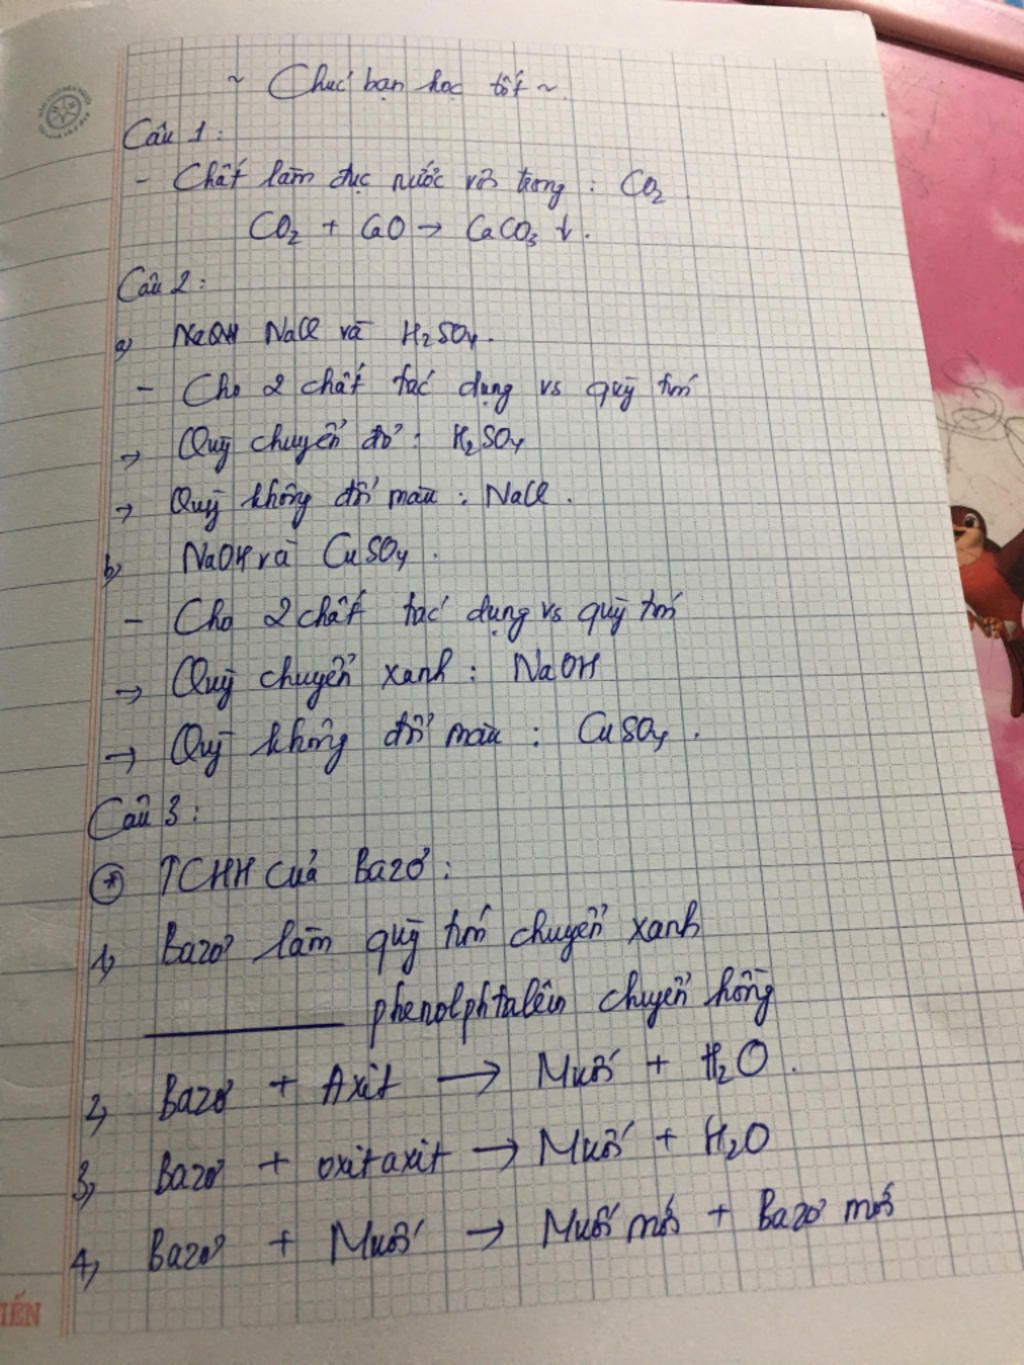 ~ Chúc bạn học tốt ~
Câu 1:
- Chất làm đục nước vôi trong : CO₂
CO₂ + CaO → CaCO₃ ↓.
Câu 2:
a) NaCl và H₂SO₄.
- Cho 2 chất tác dụng vs quỳ tím
→ Quỳ chuyển đỏ : H₂SO₄
→ Quỳ không đổi màu : NaCl.
b) NaOH và CuSO₄.
- Cho 2 chất tác dụng vs quỳ tím
→ Quỳ chuyển xanh : NaOH
→ Quỳ không đổi màu : CuSO₄.
Câu 3:
* TCHH của Bazơ:
1, Bazơ làm quỳ tím chuyển xanh
phenolphtalêin chuyển hồng
2, Bazơ + Axit → Muối + H₂O.
3, Bazơ + oxit axit → Muối + H₂O
4, Bazơ + Muối → Muối mới + Bazơ mới
TIẾN